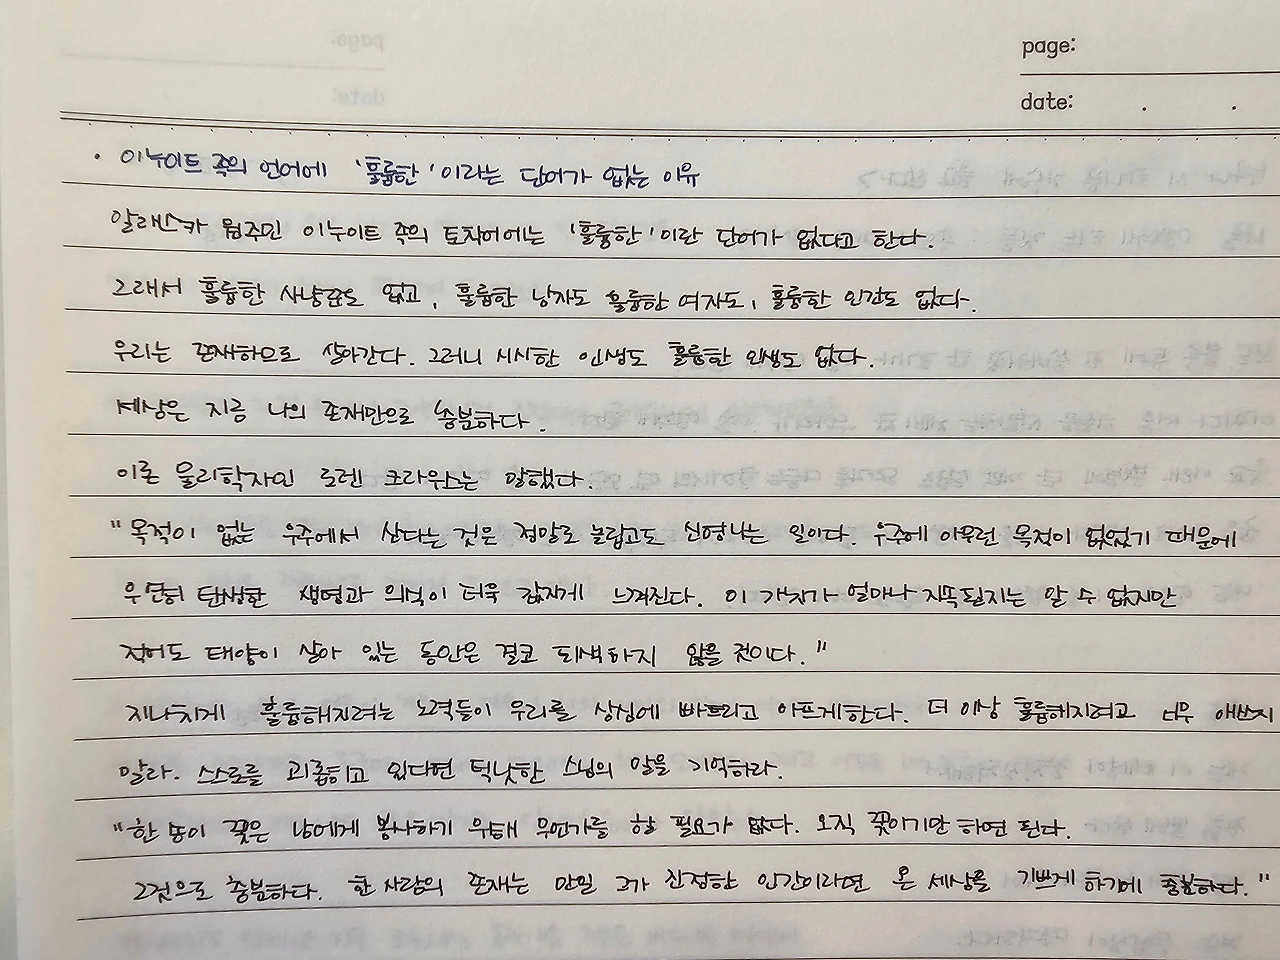 page:
date: . .
· 이누이트 족의 언어에 '훌륭한'이라는 단어가 없는 이유
알래스카 원주민 이누이트 족의 토착어에는 '훌륭한'이란 단어가 없다고 한다.
그래서 훌륭한 사냥꾼도 없고, 훌륭한 남자도 훌륭한 여자도, 훌륭한 인간도 없다.
우리는 존재하므로 살아간다. 그러니 시시한 인생도 훌륭한 인생도 없다.
세상은 지금 나의 존재만으로 충분하다.
이론 물리학자인 로렌 크라우스는 말했다.
"목적이 없는 우주에서 산다는 것은 정말로 놀랍고도 신명나는 일이다. 우주에 아무런 목적이 없었기 때문에
우연히 탄생한 생명과 의식이 더욱 값지게 느껴진다. 이 가치가 얼마나 지속될지는 알 수 없지만
적어도 태양이 살아 있는 동안은 결코 퇴색하지 않을 것이다."
지나치게 훌륭해지려는 노력들이 우리를 상심에 빠뜨리고 아프게한다. 더 이상 훌륭해지려고 너무 애쓰지
말라. 스스로를 괴롭히고 있다면 틱낫한 스님의 말을 기억하라.
"한 송이 꽃은 남에게 봉사하기 위해 무언가를 할 필요가 없다. 오직 꽃이기만 하면 된다.
그것으로 충분하다. 한 사람의 존재는 만일 그가 진정한 인간이라면 온 세상을 기쁘게 하기에 충분하다."